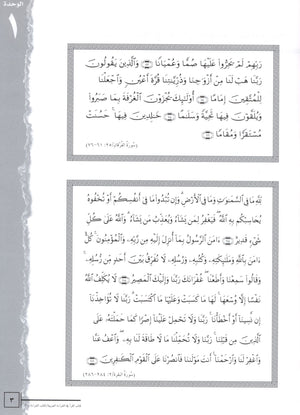 الوحدة
١
رَبِّهِمْ لَمْ يَخِرُّوا۟ عَلَيْهَا صُمًّا وَعُمْيَانًا ﴿٧٣﴾ وَٱلَّذِينَ يَقُولُونَ
رَبَّنَا هَبْ لَنَا مِنْ أَزْوَٰجِنَا وَذُرِّيَّٰتِنَا قُرَّةَ أَعْيُنٍ وَٱجْعَلْنَا
لِلْمُتَّقِينَ إِمَامًا ﴿٧٤﴾ أُو۟لَٰٓئِكَ يُجْزَوْنَ ٱلْغُرْفَةَ بِمَا صَبَرُوا۟
وَيُلَقَّوْنَ فِيهَا تَحِيَّةً وَسَلَٰمًا ﴿٧٥﴾ خَٰلِدِينَ فِيهَا ۚ حَسُنَتْ
مُسْتَقَرًّا وَمُقَامًا ﴿٧٦﴾
(سورة الفرقان/٢٥: ٦١-٧٦)
لِّلَّهِ مَا فِى ٱلسَّمَٰوَٰتِ وَمَا فِى ٱلْأَرْضِ ۗ وَإِن تُبْدُوا۟ مَا فِىٓ أَنفُسِكُمْ أَوْ تُخْفُوهُ
يُحَاسِبْكُم بِهِ ٱللَّهُ ۖ فَيَغْفِرُ لِمَن يَشَآءُ وَيُعَذِّبُ مَن يَشَآءُ ۗ وَٱللَّهُ عَلَىٰ كُلِّ
شَىْءٍ قَدِيرٌ ﴿٢٨٤﴾ ءَامَنَ ٱلرَّسُولُ بِمَآ أُنزِلَ إِلَيْهِ مِن رَّبِّهِۦ وَٱلْمُؤْمِنُونَ ۚ كُلٌّ
ءَامَنَ بِٱللَّهِ وَمَلَٰٓئِكَتِهِۦ وَكُتُبِهِۦ وَرُسُلِهِۦ لَا نُفَرِّقُ بَيْنَ أَحَدٍ مِّن رُّسُلِهِۦ ۚ
وَقَالُوا۟ سَمِعْنَا وَأَطَعْنَا ۖ غُفْرَانَكَ رَبَّنَا وَإِلَيْكَ ٱلْمَصِيرُ ﴿٢٨٥﴾ لَا يُكَلِّفُ ٱللَّهُ
نَفْسًا إِلَّا وُسْعَهَا ۚ لَهَا مَا كَسَبَتْ وَعَلَيْهَا مَا ٱكْتَسَبَتْ ۗ رَبَّنَا لَا تُؤَاخِذْنَآ
إِن نَّسِينَآ أَوْ أَخْطَأْنَا ۚ رَبَّنَا وَلَا تَحْمِلْ عَلَيْنَآ إِصْرًا كَمَا حَمَلْتَهُۥ عَلَى
ٱلَّذِينَ مِن قَبْلِنَا ۚ رَبَّنَا وَلَا تُحَمِّلْنَا مَا لَا طَاقَةَ لَنَا بِهِۦ ۖ وَٱعْفُ عَنَّا
وَٱغْفِرْ لَنَا وَٱرْحَمْنَآ ۚ أَنتَ مَوْلَىٰنَا فَٱنصُرْنَا عَلَى ٱلْقَوْمِ ٱلْكَٰفِرِينَ ﴿٢٨٦﴾
(سورة البقرة/٢: ٢٨٤-٢٨٦)
٣